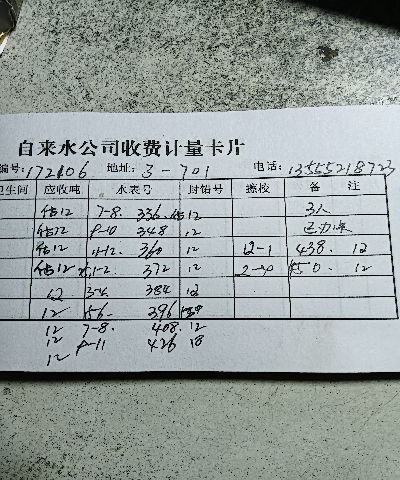 自来水公司收费计量卡片
编号:172606 地址:3-701 电话:13555218723
卫生间 应收吨 水表号 封铅号 擦校 备 注
估12 7-8. 336. 估12 3人
估12 9-10 348 12
估12 11-12. 360 12 12-1 438. 12
估12 1-2 372 12 2-30 450. 12
12 3-4 384 12
12 5-6 396
12 7-8. 408. 12
12 9-11 426 18
12